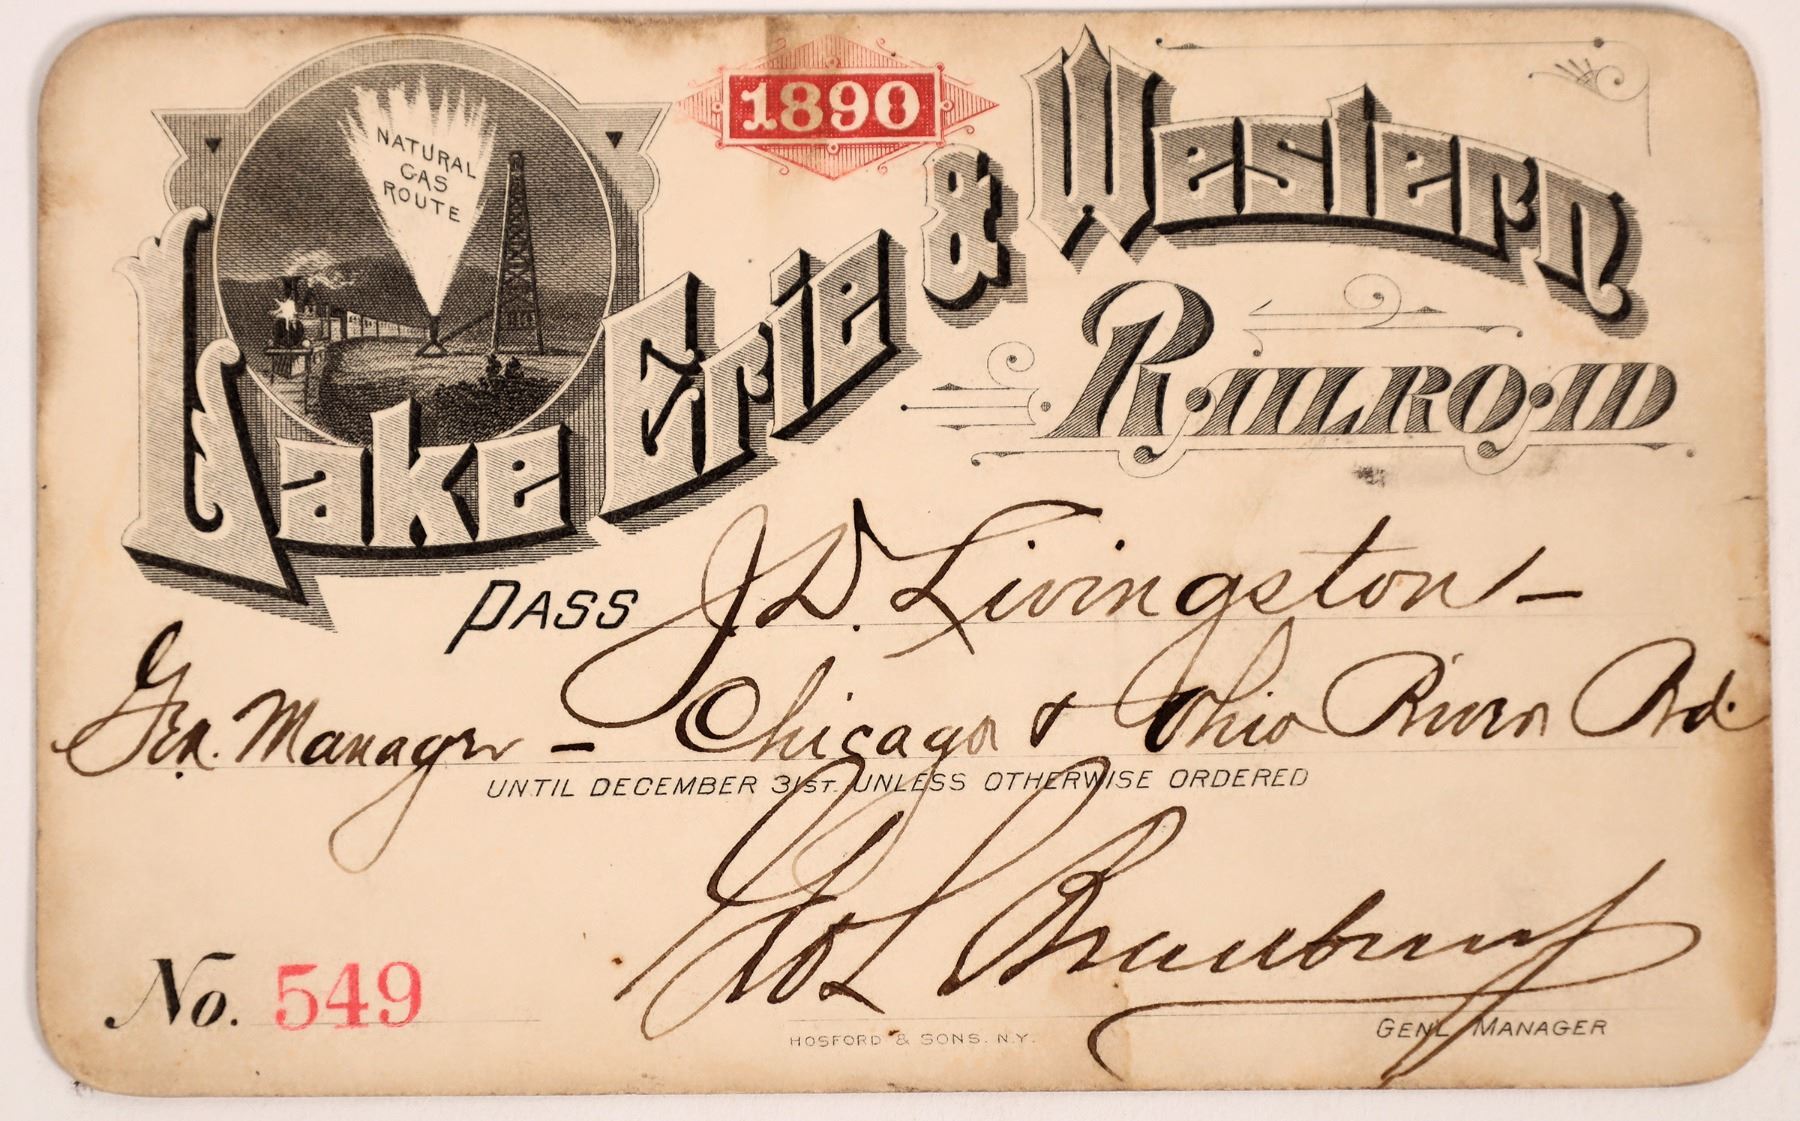 1890
NATURAL
GAS
ROUTE
Lake Erie & Western
RAILROAD
PASS J.D. Livingston —
Gen. Manager — Chicago & Ohio River Rd.
UNTIL DECEMBER 31ST. UNLESS OTHERWISE ORDERED
Geo L Bradbury
No. 549
GENL MANAGER
HOSFORD & SONS. N.Y.